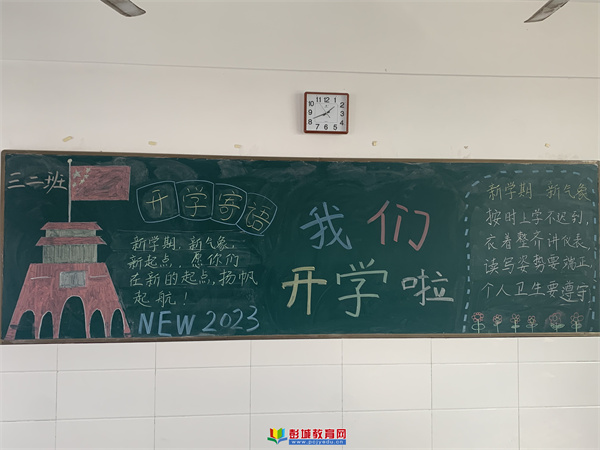 三二班
开学寄语
新学期、新气象，
新起点，愿你们
在新的起点，扬帆
起航！
NEW 2023
我们
开学啦
新学期 新气象
按时上学不迟到，
衣着整齐讲仪表，
读写姿势要端正，
个人卫生要遵守
彭城教育网
www.pcjyedu.cn